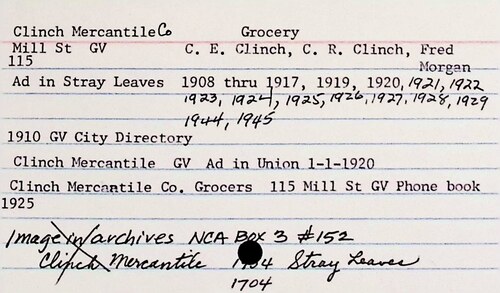 Clinch Mercantile Co Grocery
Mill St GV C. E. Clinch, C. R. Clinch, Fred
115 Morgan
Ad in Stray Leaves 1908 thru 1917, 1919, 1920, 1921, 1922
1923, 1924, 1925, 1926, 1927, 1928, 1929
1944, 1945
1910 GV City Directory
Clinch Mercantile GV Ad in Union 1-1-1920
Clinch Mercantile Co. Grocers 115 Mill St GV Phone book
1925
Image in/archives NCA BOX 3 #152
Clinch Mercantile Stray Leaves
1704